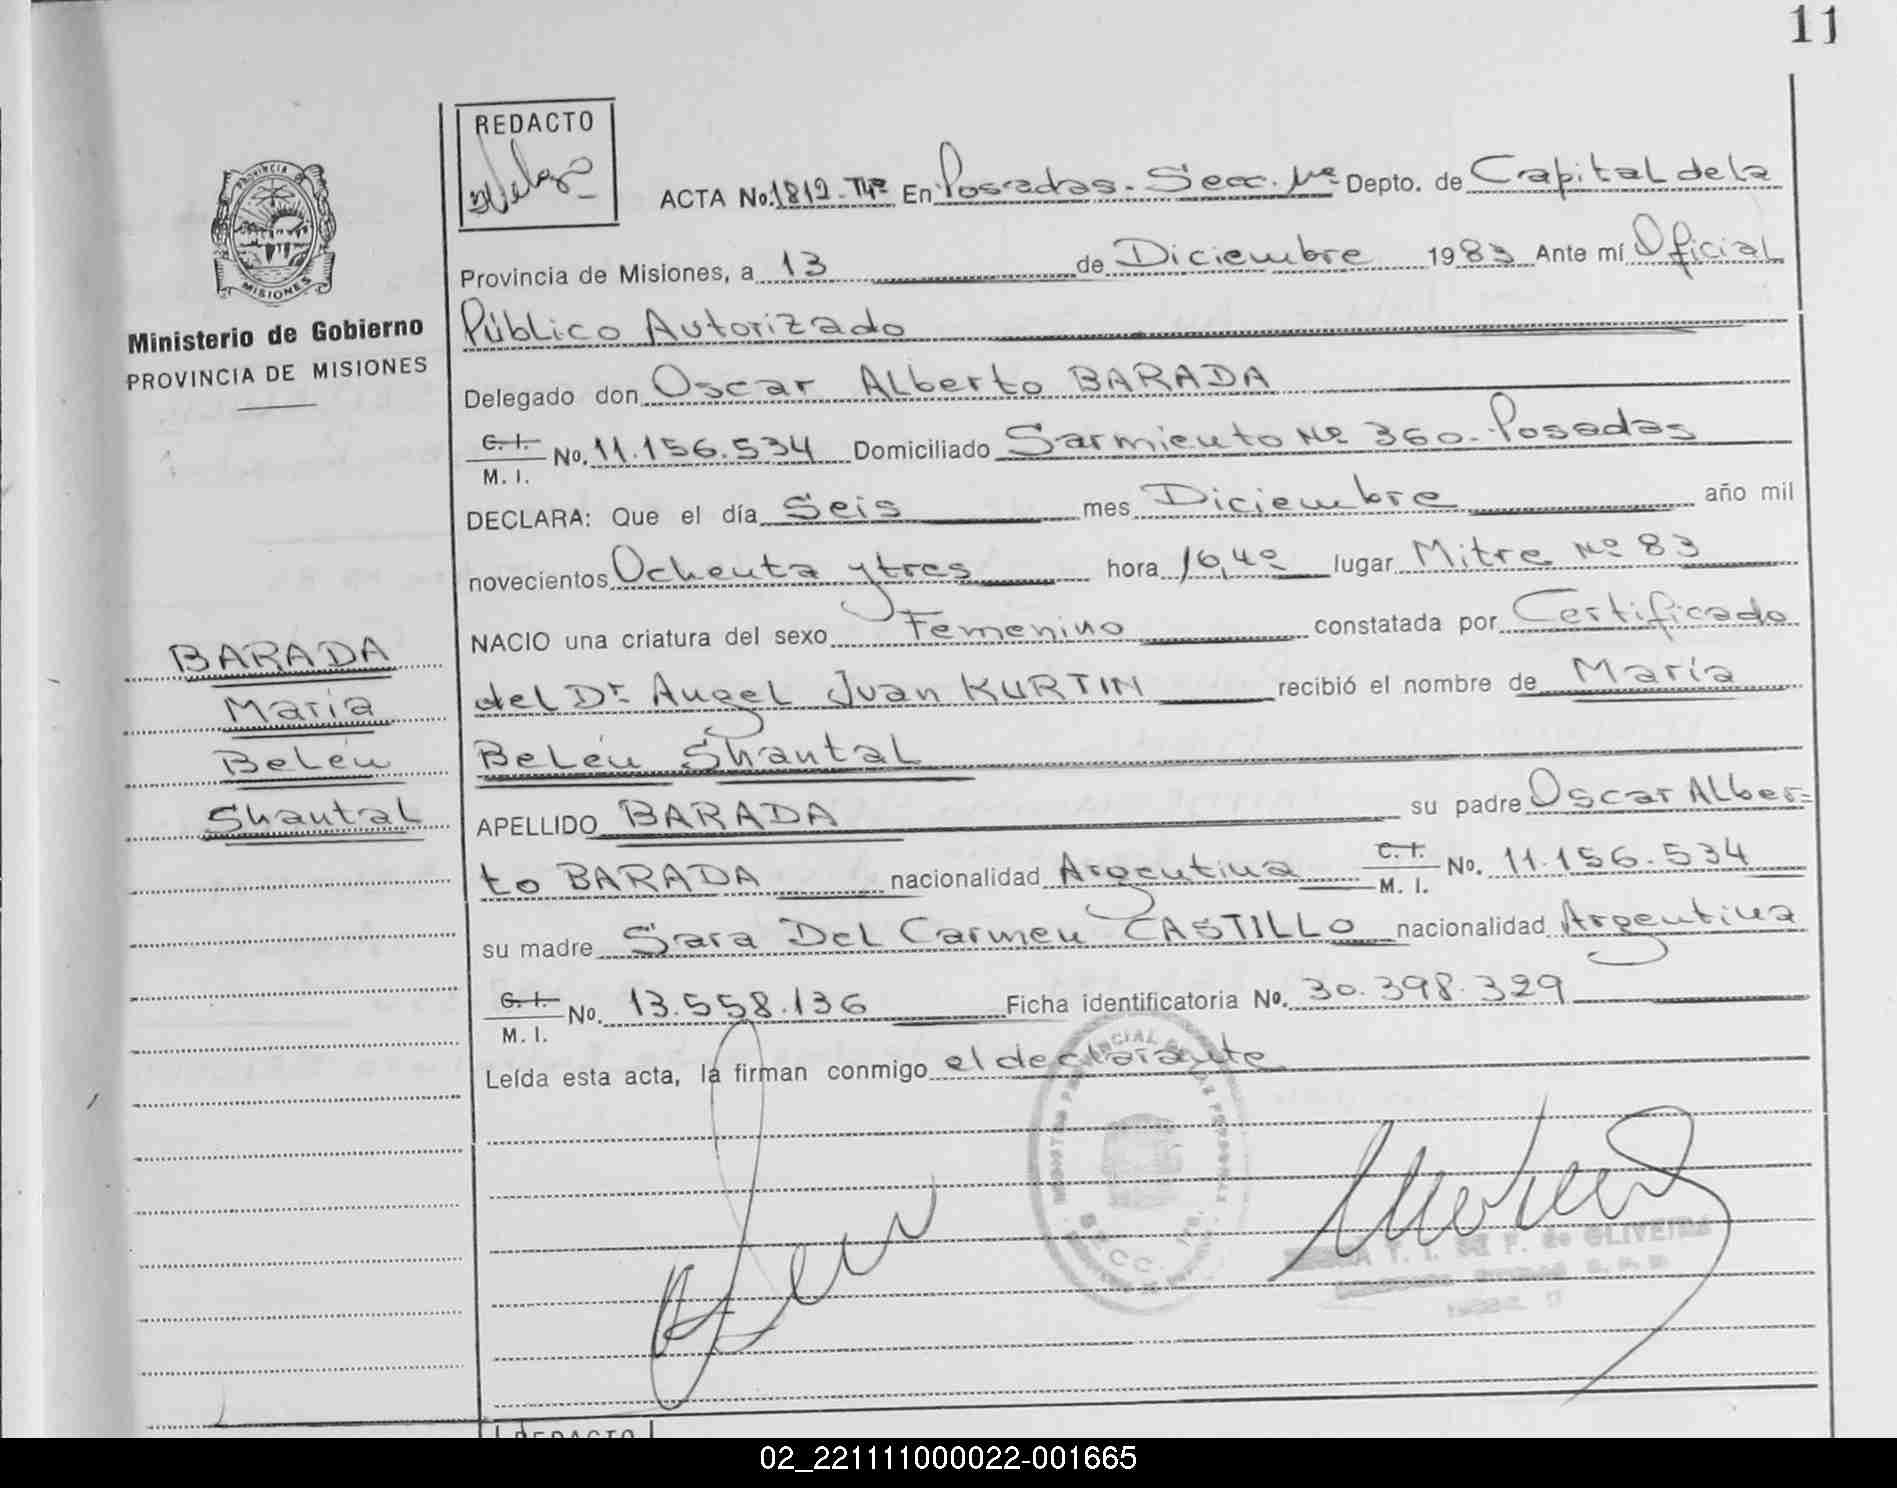 11
PROVINCIA
MISIONES
Ministerio de Gobierno
PROVINCIA DE MISIONES
REDACTO
ACTA No. 1812-Tº4º En Posadas. Secc. 1ra Depto. de Capital de la
Provincia de Misiones, a 13 de Diciembre 1983 Ante mí Oficial
Público Autorizado
Delegado don Oscar Alberto BARADA
C. I. / M. I. No. 11.156.534 Domiciliado Sarmiento Nº 360. Posadas
DECLARA: Que el día Seis mes Diciembre año mil
novecientos Ochenta y tres hora 16,4º lugar Mitre Nº 83
NACIO una criatura del sexo Femenino constatada por Certificado
del Dr. Angel Juan KURTIN recibió el nombre de María
Belén Shantal
APELLIDO BARADA su padre Oscar Alber=
to BARADA nacionalidad Argentina C. I. / M. I. No. 11.156.534
su madre Sara Del Carmen CASTILLO nacionalidad Argentina
C. I. / M. I. No. 13.558.136 Ficha identificatoria No. 30.398.329
Leída esta acta, la firman conmigo el declarante
BARADA
María
Belén
Shantal
SECC. 1ra.
de OLIVEIRA
REDACTO
02_221111000022-001665